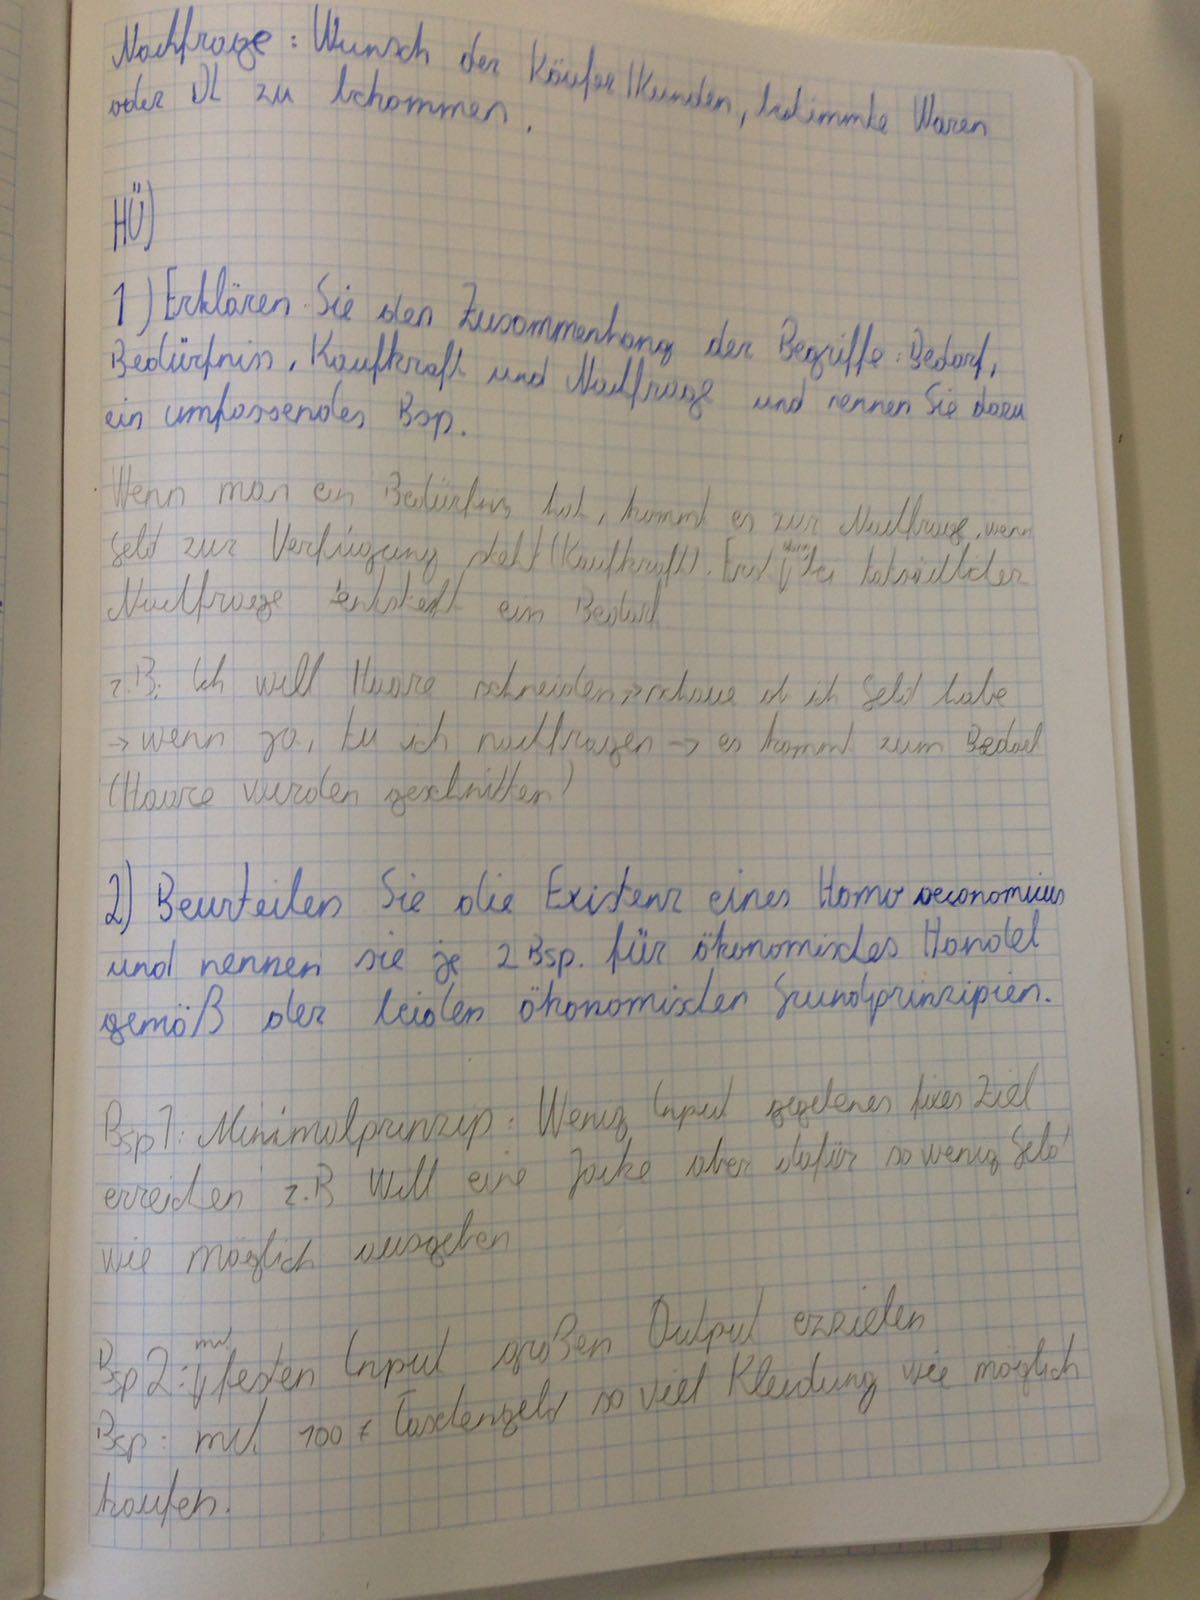 Nachfrage: Wunsch der Käufer/Kunden, bestimmte Waren
oder DL zu bekommen.
HÜ)
1) Erklären Sie den Zusammenhang der Begriffe: Bedarf,
Bedürfnis, Kaufkraft und Nachfrage und nennen Sie dazu
ein umfassendes Bsp.
Wenn man ein Bedürfnis hat, kommt es zur Nachfrage, wenn
Geld zur Verfügung steht (Kaufkraft). Erst bei tatsächlicher
Nachfrage entsteht ein Bedarf
z.B. Ich will Haare schneiden, schaue ob ich Geld habe
→ wenn ja, tu ich nachfragen → es kommt zum Bedarf
(Haare wurden geschnitten)
2) Beurteilen Sie die Existenz eines Homo oeconomicus
und nennen sie je 2 Bsp. für ökonomisches Handel
gemäß der beiden ökonomischen Grundprinzipien.
Bsp 1: Minimalprinzip: Wenig Input gegebenes fixes Ziel
erreichen z.B Will eine Jacke aber dafür so wenig Geld
wie möglich ausgeben
Bsp 2: mit festen Input großen Output erzielen
Bsp: mit 100 € Taschengeld so viel Kleidung wie möglich
kaufen.